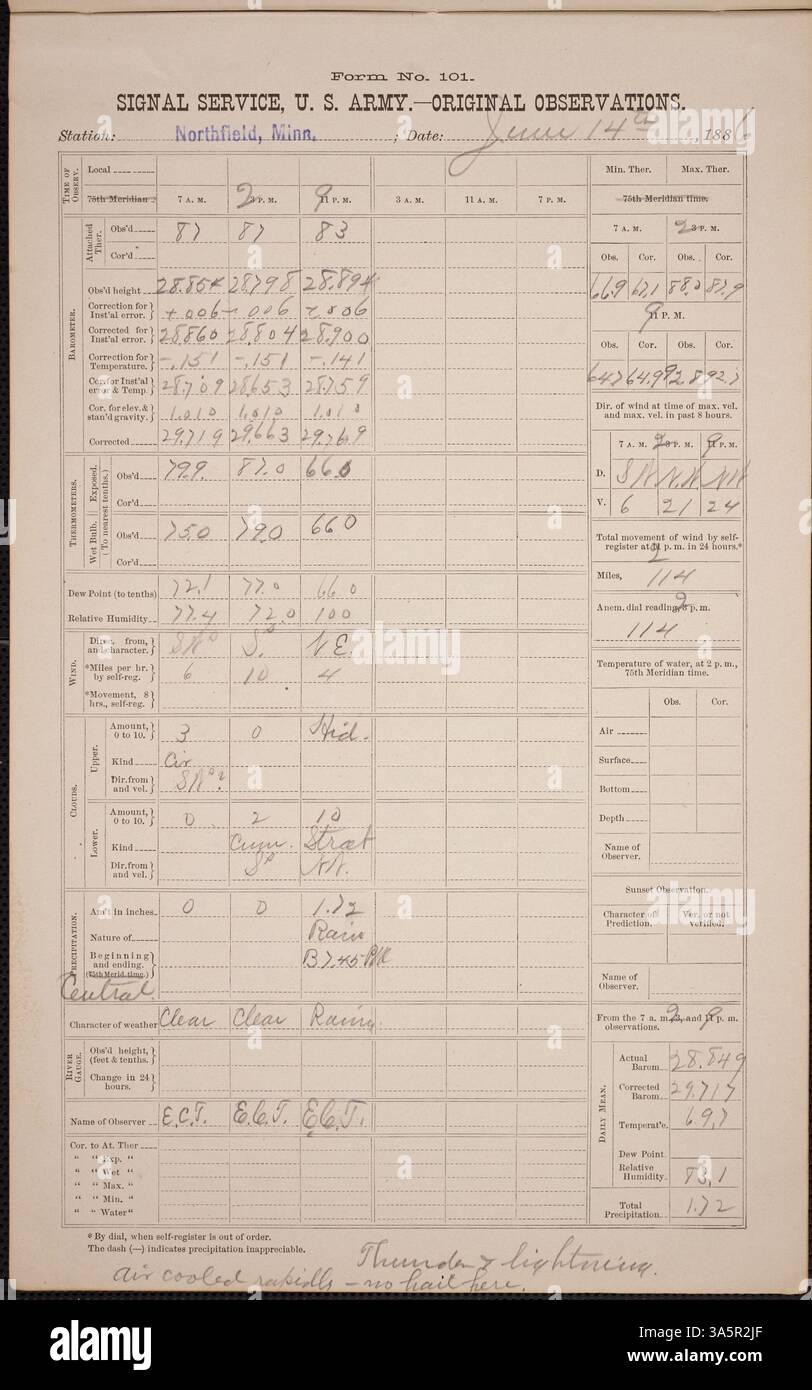 Form No. 101.
SIGNAL SERVICE, U. S. ARMY.—ORIGINAL OBSERVATIONS.
Station: Northfield, Minn. ; Date: June 14th, 188
TIME OF OBSERV.
Local
75th Meridian 7 A. M. 2 P. M. 9 P. M. 3 A. M. 11 A. M. 7 P. M.
BAROMETER.
Attached Ther.
Obs'd 87 87 83
Cor'd
Obs'd height 28.854 28.798 28.894
Correction for Inst'al error. +.006 .006 .006
Corrected for Inst'al error. 28.860 28.804 28.900
Correction for Temperature. -.151 -.151 -.141
Cor. for Inst'al error & Temp. 28.709 28.653 28.759
Cor. for elev. & stan'd gravity. 1.010 1.010 1.010
Corrected 29.719 29.663 29.769
THERMOMETERS.
Exposed. (To nearest tenths.)
Obs'd 79.9 87.0 66.0
Cor'd
Wet Bulb.
Obs'd 75.0 79.0 66.0
Cor'd
Dew Point (to tenths) 72.1 77.0 66.0
Relative Humidity 77.4 72.0 100
WIND.
Direc. from, and character. SW S N.E.
*Miles per hr. by self-reg. 6 10 4
*Movement, 8 hrs., self-reg.
CLOUDS.
Upper.
Amount, 0 to 10. 3 0 Hid.
Kind Cir
Dir. from and vel. SW ?
Lower.
Amount, 0 to 10. 0 2 10
Kind Cum. Strat
Dir. from and vel. S NW.
PRECIPITATION.
Am't in inches 0 0 1.72
Nature of Rain
Beginning and ending. (75th Merid. time.) B 7.45 PM
Central
Character of weather Clear Clear Rainy
RIVER GAUGE.
Obs'd height, (feet & tenths.)
Change in 24 hours.
Name of Observer E.C.T. E.C.T. E.C.T.
Cor. to At. Ther
" " Exp. "
" " Wet "
" " Max. "
" " Min. "
" " Water "
Min. Ther. Max. Ther.
75th Meridian time.
7 A. M. 2 P. M.
Obs. Cor. Obs. Cor.
66.9 67.1 88.0 87.9
9 P. M.
Obs. Cor. Obs. Cor.
64.7 64.9 92.8 92.7
Dir. of wind at time of max. vel. and max. vel. in past 8 hours.
7 A. M. 2 P. M. 9 P. M.
D. SW N.W. NW
V. 6 21 24
Total movement of wind by self-register at 2 p. m. in 24 hours.*
Miles, 114
Anem. dial reading, 2 p. m.
114
Temperature of water, at 2 p. m., 75th Meridian time.
Obs. Cor.
Air
Surface
Bottom
Depth
Name of Observer.
Sunset Observation.
Character of Prediction. Ver. or not verified.
Name of Observer.
From the 7 a. m., 2, and 9 p. m. observations.
DAILY MEAN.
Actual Barom. 28.849
Corrected Barom. 29.717
Temperat'e. 69.7
Dew Point
Relative Humidity 83.1
Total Precipitation. 1.72
* By dial, when self-register is out of order.
The dash (—) indicates precipitation inappreciable.
Thunder & lightning.
air cooled rapidly – no hail here.
alamy
Image ID: 3A5R2JF
www.alamy.com